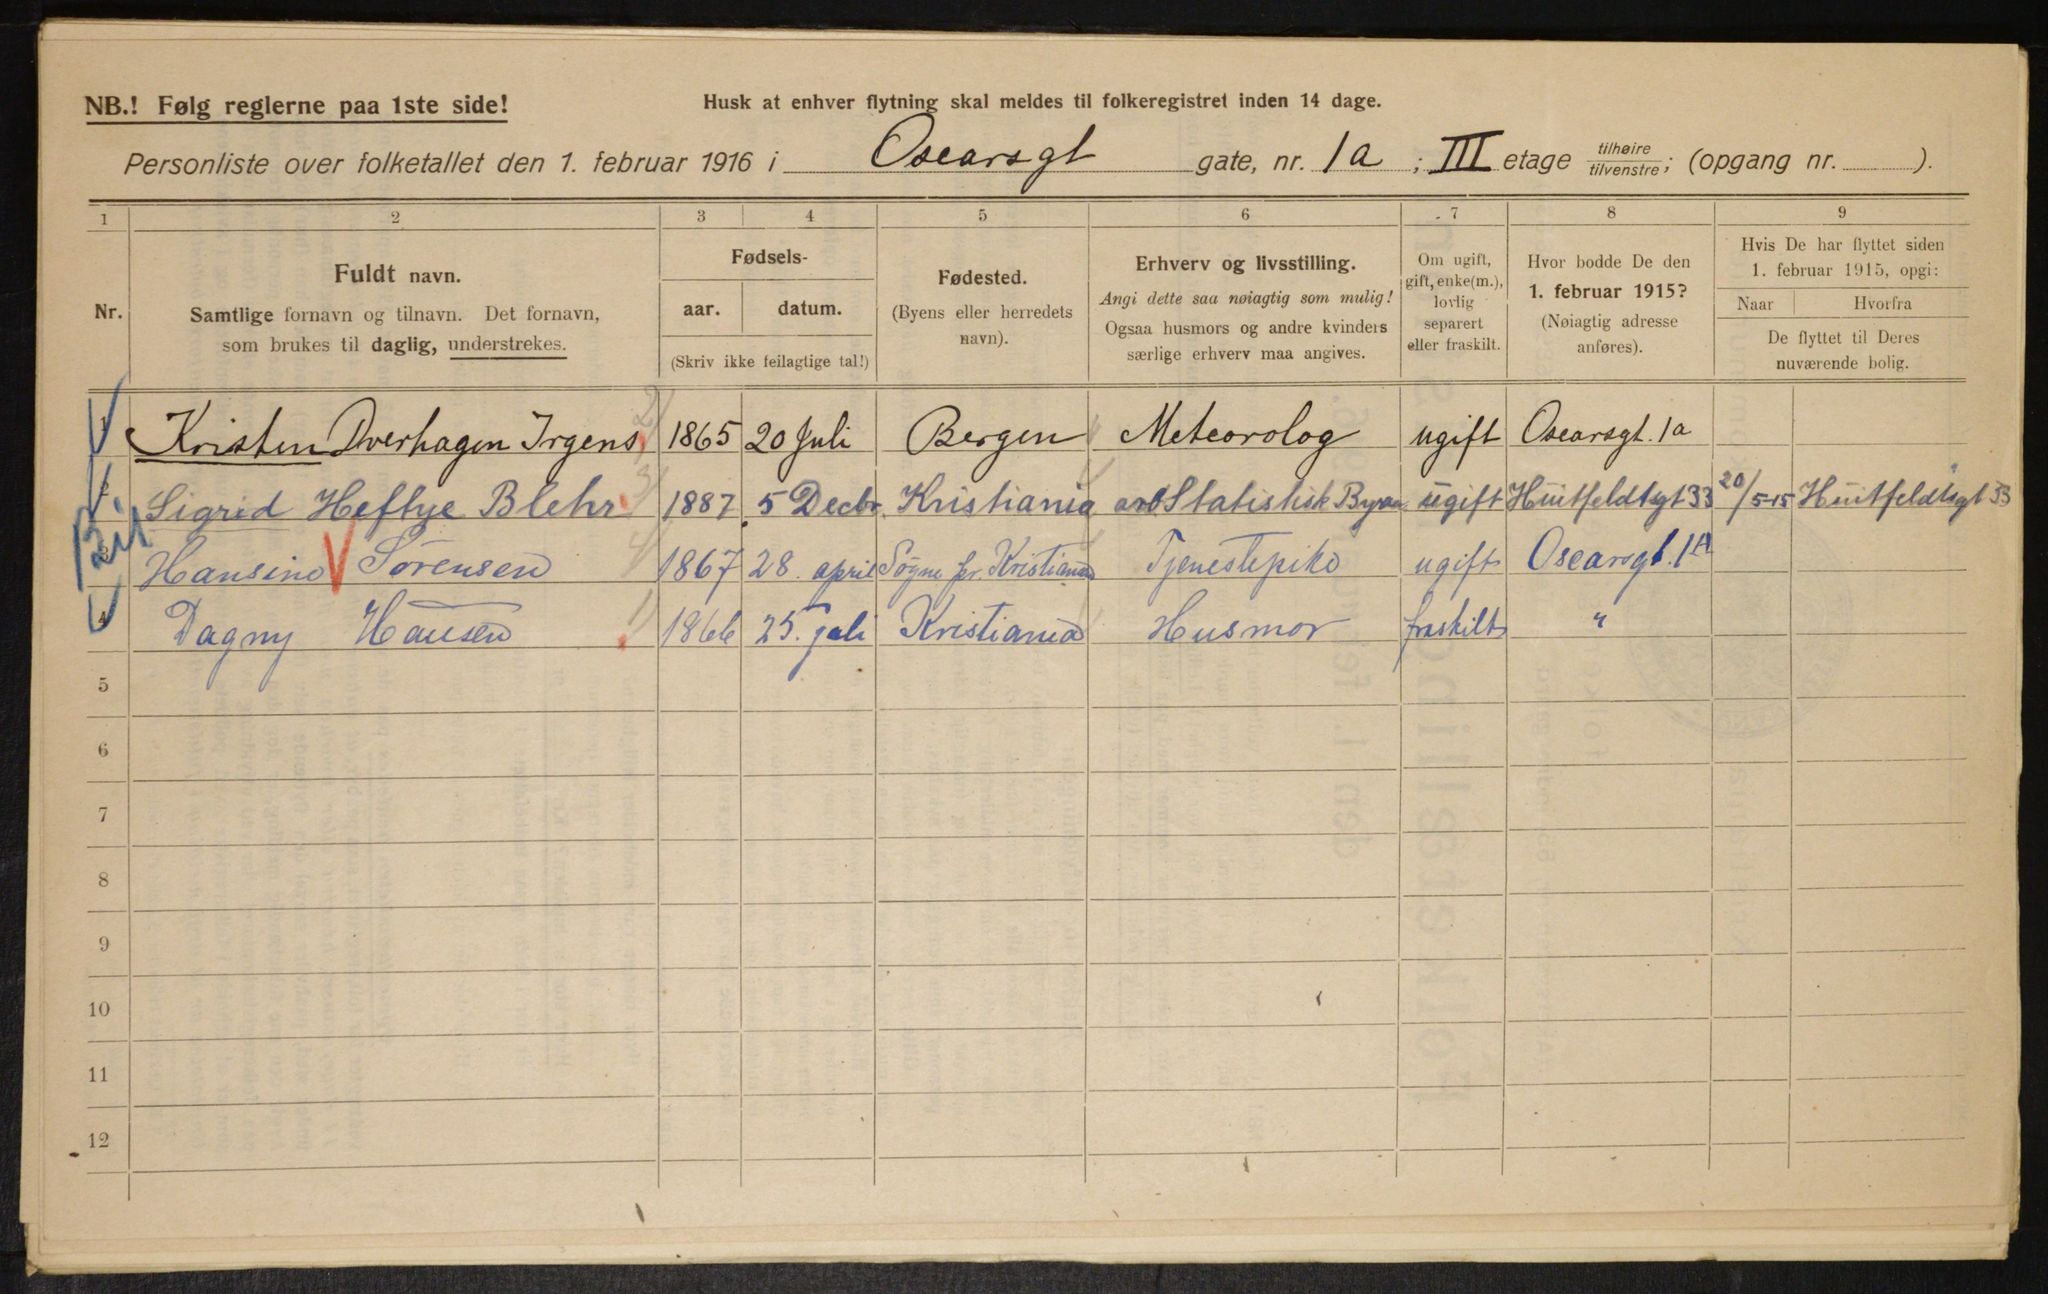 NB.! Følg reglerne paa 1ste side!
Husk at enhver flytning skal meldes til folkeregistret inden 14 dage.
Personliste over folketallet den 1. februar 1916 i Oscarsgt gate, nr. 1a; III etage tilhøire tilvenstre; (opgang nr. ).
1 2 3 4 5 6 7 8 9
Nr.
Fuldt navn.
Samtlige fornavn og tilnavn. Det fornavn,
som brukes til daglig, understrekes.
Fødsels-
aar. datum.
(Skriv ikke feilagtige tal!)
Fødested.
(Byens eller herredets
navn).
Erhverv og livsstilling.
Angi dette saa nøiagtig som mulig!
Ogsaa husmors og andre kvinders
særlige erhverv maa angives.
Om ugift,
gift, enke(m.),
lovlig
separert
eller fraskilt.
Hvor bodde De den
1. februar 1915?
(Nøiagtig adresse
anføres).
Hvis De har flyttet siden
1. februar 1915, opgi:
Naar Hvorfra
De flyttet til Deres
nuværende bolig.
Kristen Overhagen Irgens 1865 20 Juli Bergen Meteorolog ugift Oscarsgt. 1a
Sigrid Heftye Blehr 1887 5 Decbr. Kristiania Statistisk Byraa ugift Huitfeldtsgt 33 20/5-15 Huitfeldtsgt 33
Hansine Sørensen 1867 28. april Søgne pr. Kristiansd Tjenestepike ugift Oscarsgt. 1A
4 Dagny Hansen 1866 25. juli Kristiania Husmor fraskilt "
5
6
7
8
9
10
11
12